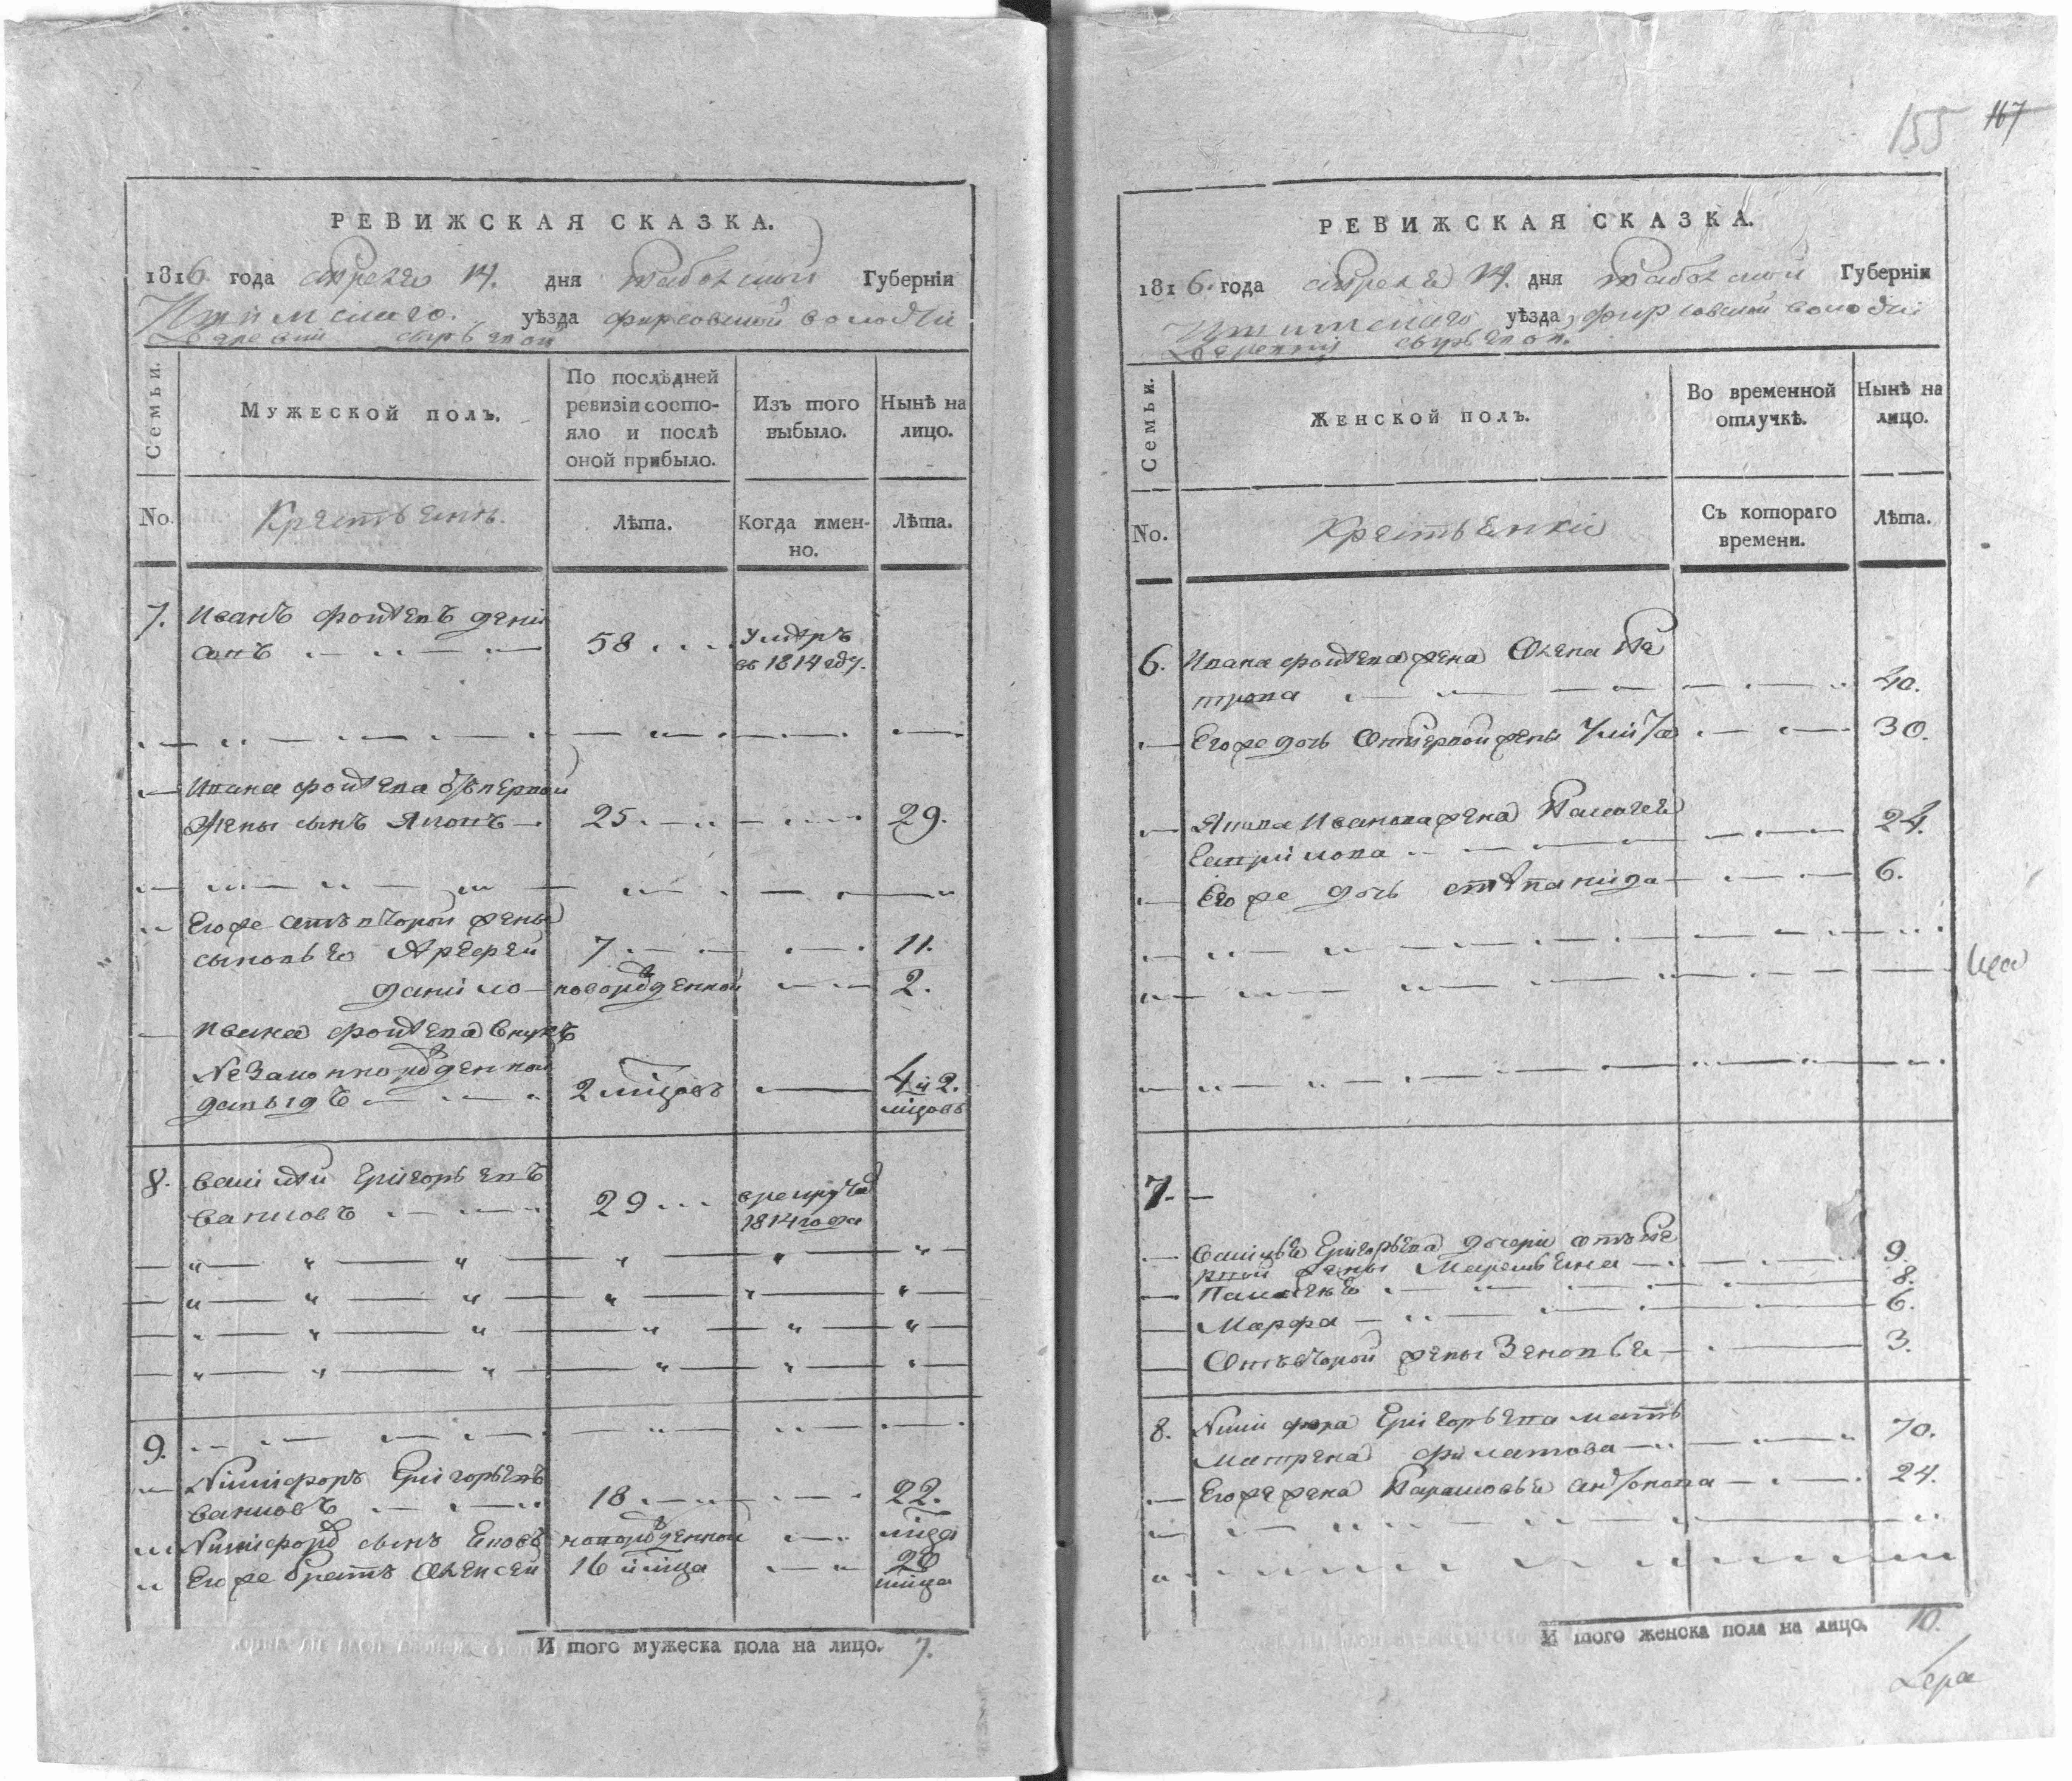 РЕВИЖСКАЯ СКАЗКА.
1816 года апреля 14. дня Таболской Губерніи
Ишимскаго. уѣзда фирсовской волости
Деревни
Семьи.
Мужеской полъ.
По послѣдней ревизіи состояло и послѣ оной прибыло.
Изъ того выбыло.
Нынѣ на лицо.
No.
Крестьяне.
Лѣта.
Когда именно.
Лѣта.
7. Иванъ фотеевъ дени
совъ 58 умеръ
въ 1814 году.
Ивана фотеева отъ первой
жены сынъ Яковъ 25 29.
Его же отъ второй жены
сыновья Арефей 7 11.
данило новорожденной 2.
Ивана фотеева внукъ
Незаконнорожденной
давыдъ 2 мцовъ 4 и 2.
мцовъ
8. Василей Григорьевъ
29 в рекруты
1814 года
9.
Никифоръ Григорьевъ
18 22.
Никифора сынъ новорожденной
Его же братъ Алексей 16
И того мужеска пола на лицо. 7.
155 167
РЕВИЖСКАЯ СКАЗКА.
1816. года апреля 14. дня Таболской Губерніи
Ишимскаго уѣзда, фирсовской волости
Деревни
Семьи.
Женской полъ.
Во временной отлучкѣ.
Нынѣ на лицо.
No.
Крестьянки
Съ котораго времени.
Лѣта.
6. Ивана фотеева жена Олена Пе
трова 40.
Его же дочь от первой жены 30.
Якова Иванова жена Палагея
Гаврилова 24.
Его же дочь степанида 6.
7.
Василья Григорьева дочери отъ пе
рвой жены 9.
8.
Марфа 6.
Отъ второй жены Зеновья 3.
8. Никифора Григорьева мать
Матрена филатова 70.
Его же жена Парасковья Антонова 24.
И того женска пола на лицо. 10.